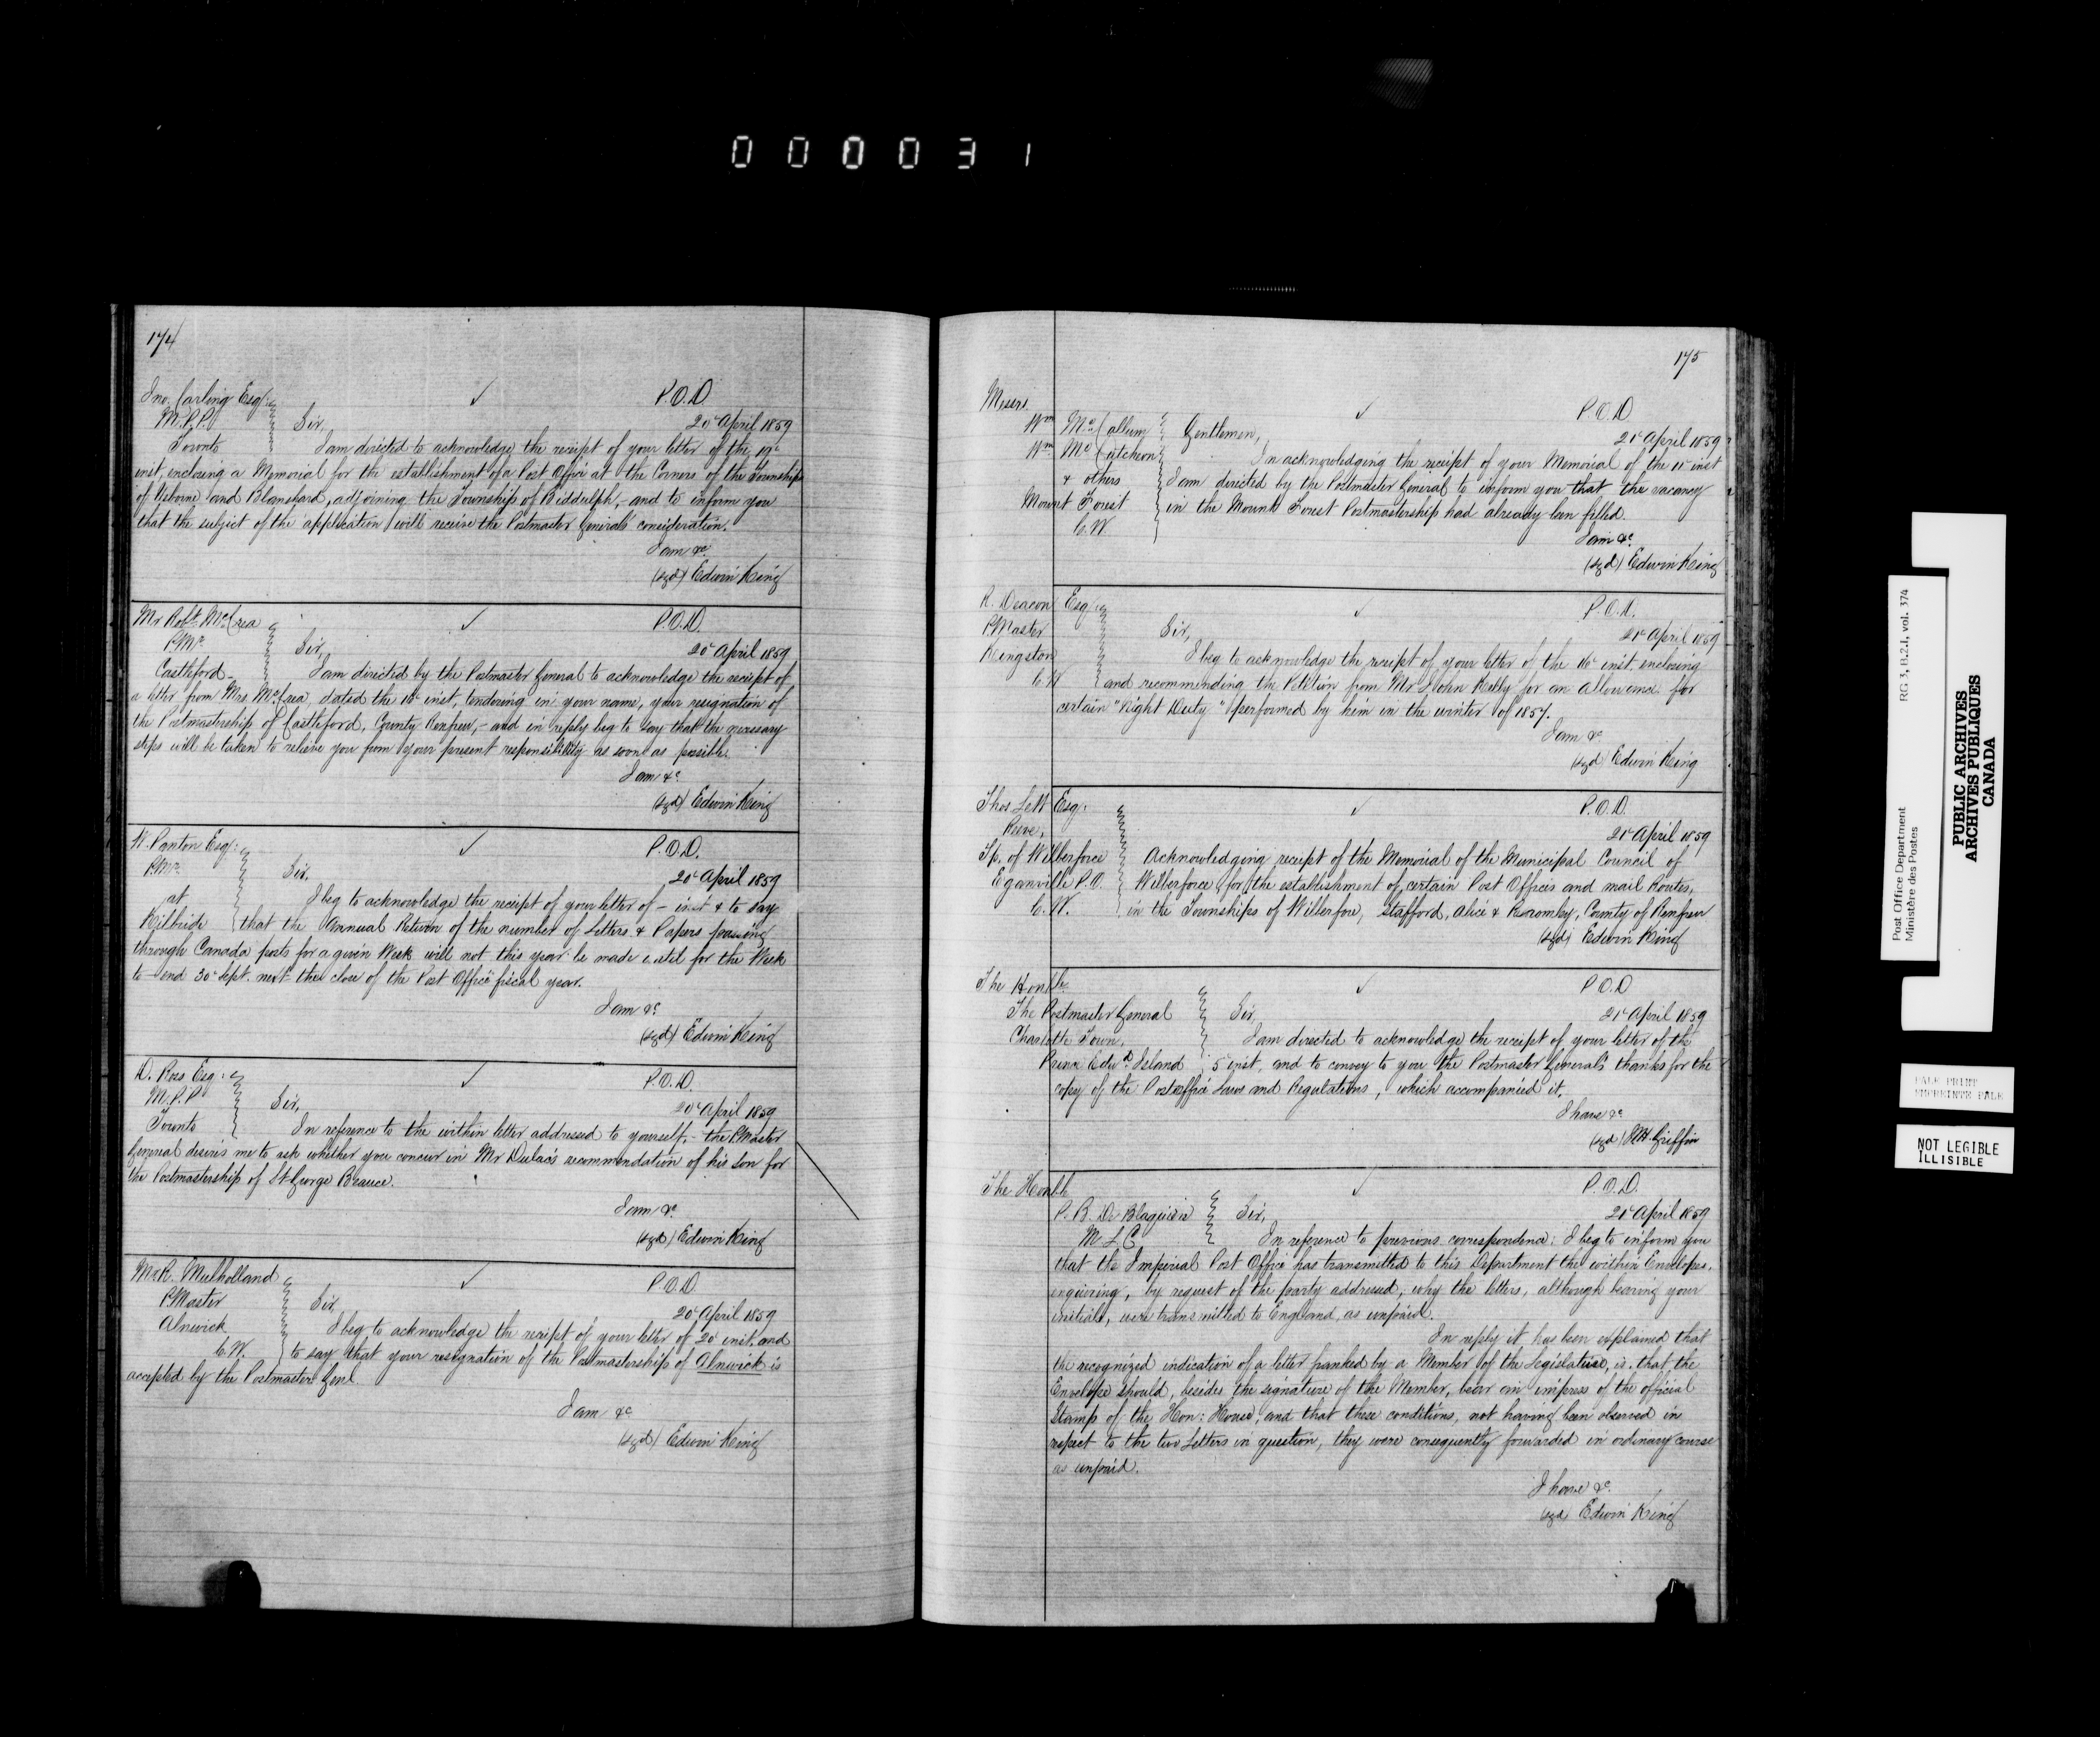 000031
174
Jno. Carling Esq:
M.P.P.
Toronto
P.O.D
20 April 1859
Sir,
I am directed to acknowledge the receipt of your letter of the 19
inst, enclosing a Memorial for the establishment of a Post Office at the Corners of the Townships
of Usborne and Blanshard, adjoining the Township of Biddulph, - and to inform you
that the subject of the application will receive the Postmaster Generals consideration.
I am &c
(sgd) Edwin King
Mr Robt. McCrea
P.Mr.
Castleford
P.O.D.
20 April 1859
Sir,
I am directed by the Postmaster General to acknowledge the receipt of
a letter from Mrs McCrea dated the 16 inst, tendering in your name, your resignation of
the Postmastership of Castleford, County Renfrew, - and in reply beg to say that the necessary
steps will be taken to relieve you from your present responsibility as soon as possible.
I am &c
(sgd) Edwin King
W. Panton Esq:
P.Mr.
at
Kilbride
P.O.D.
20 April 1859
Sir,
I beg to acknowledge the receipt of your letter of - inst & to say
that the Annual Return of the number of Letters & Papers passing
through Canada posts for a given Week will not this year be made until for the Week
to end 30 Sept. next the close of the Post Office fiscal year.
I am &c
(sgd) Edwin King
D. Ross Esq:
M.P.P
Toronto
P.O.D.
20 April 1859
Sir,
In reference to the within letter addressed to yourself, - the P.Master
General desires me to ask whether you concur in Mr Dulac's recommendation of his son for
the Postmastership of St George Beauce.
I am &c
(sgd) Edwin King
Mr R. Mulholland
P.Master
Alnwick
C.W.
P.O.D.
20 April 1859
Sir,
I beg to acknowledge the receipt of your letter of 20 inst, and
to say that your resignation of the Postmastership of Alnwick is
accepted by the Postmaster Genl.
I am &c
(sgd) Edwin King
175
Messrs.
Wm McCallum
Wm McCutcheon
& others
Mount Forest
C.W.
P.O.D
21 April 1859
Gentlemen,
In acknowledging the receipt of your Memorial of the 11 inst
I am directed by the Postmaster General to inform you that the vacancy
in the Mount Forest Postmastership had already been filled.
I am &c.
(sgd) Edwin King
R. Deacon Esq:
P.Master
Kingston
C.W
P.O.D.
21 April 1859
Sir,
I beg to acknowledge the receipt of your letter of the 16 inst. enclosing
and recommending the Petition from Mr John Kelly for an allowance for
certain "Night Duty" performed by him in the winter of 1857.
I am &c
(sgd) Edwin King
Thos Lett Esq.
Reeve,
Tp. of Wilberforce
Eganville P.O.
C.W.
P.O.D.
21 April 1859
Acknowledging receipt of the Memorial of the Municipal Council of
Wilberforce for the establishment of certain Post Offices and mail Routes,
in the Townships of Wilberfore, Stafford, Alice & Bromley, County of Renfrew
(sgd) Edwin King
The Honble.
The Postmaster General
Charlotte Town,
Prince Edwd Island
P.O.D
21 April 1859
Sir,
I am directed to acknowledge the receipt of your letter of the
5 inst, and to convey to you the Postmaster General's thanks for the
copy of the Post office Laws and Regulations, which accompanied it.
I have &c
(sgd) W H Griffin
The Honble
P. B. De Blaquiere
M. L. C.
P.O.D.
21 April 1859
Sir,
In reference to previous correspondence: I beg to inform you
that the Imperial Post Office has transmitted to this Department the within Envelopes,
enquiring, by request of the party addressed, why the letters, although bearing your
initials, were transmitted to England, as unpaid.
In reply it has been explained that
the recognized indication of a letter franked by a Member of the Legislature, is, that the
Envelope should, besides the signature of the Member, bear an impress of the official
Stamp of the Hon: House, and that these conditions, not having been observed in
respect to the two Letters in question, they were consequently forwarded in ordinary course
as unpaid.
I have &c.
(sgd) Edwin King
Post Office Department RG 3, B.2.1, vol. 374
Ministère des Postes
PUBLIC ARCHIVES
ARCHIVES PUBLIQUES
CANADA
PALE PRINT
EMPREINTE PALE
NOT LEGIBLE
ILLISIBLE